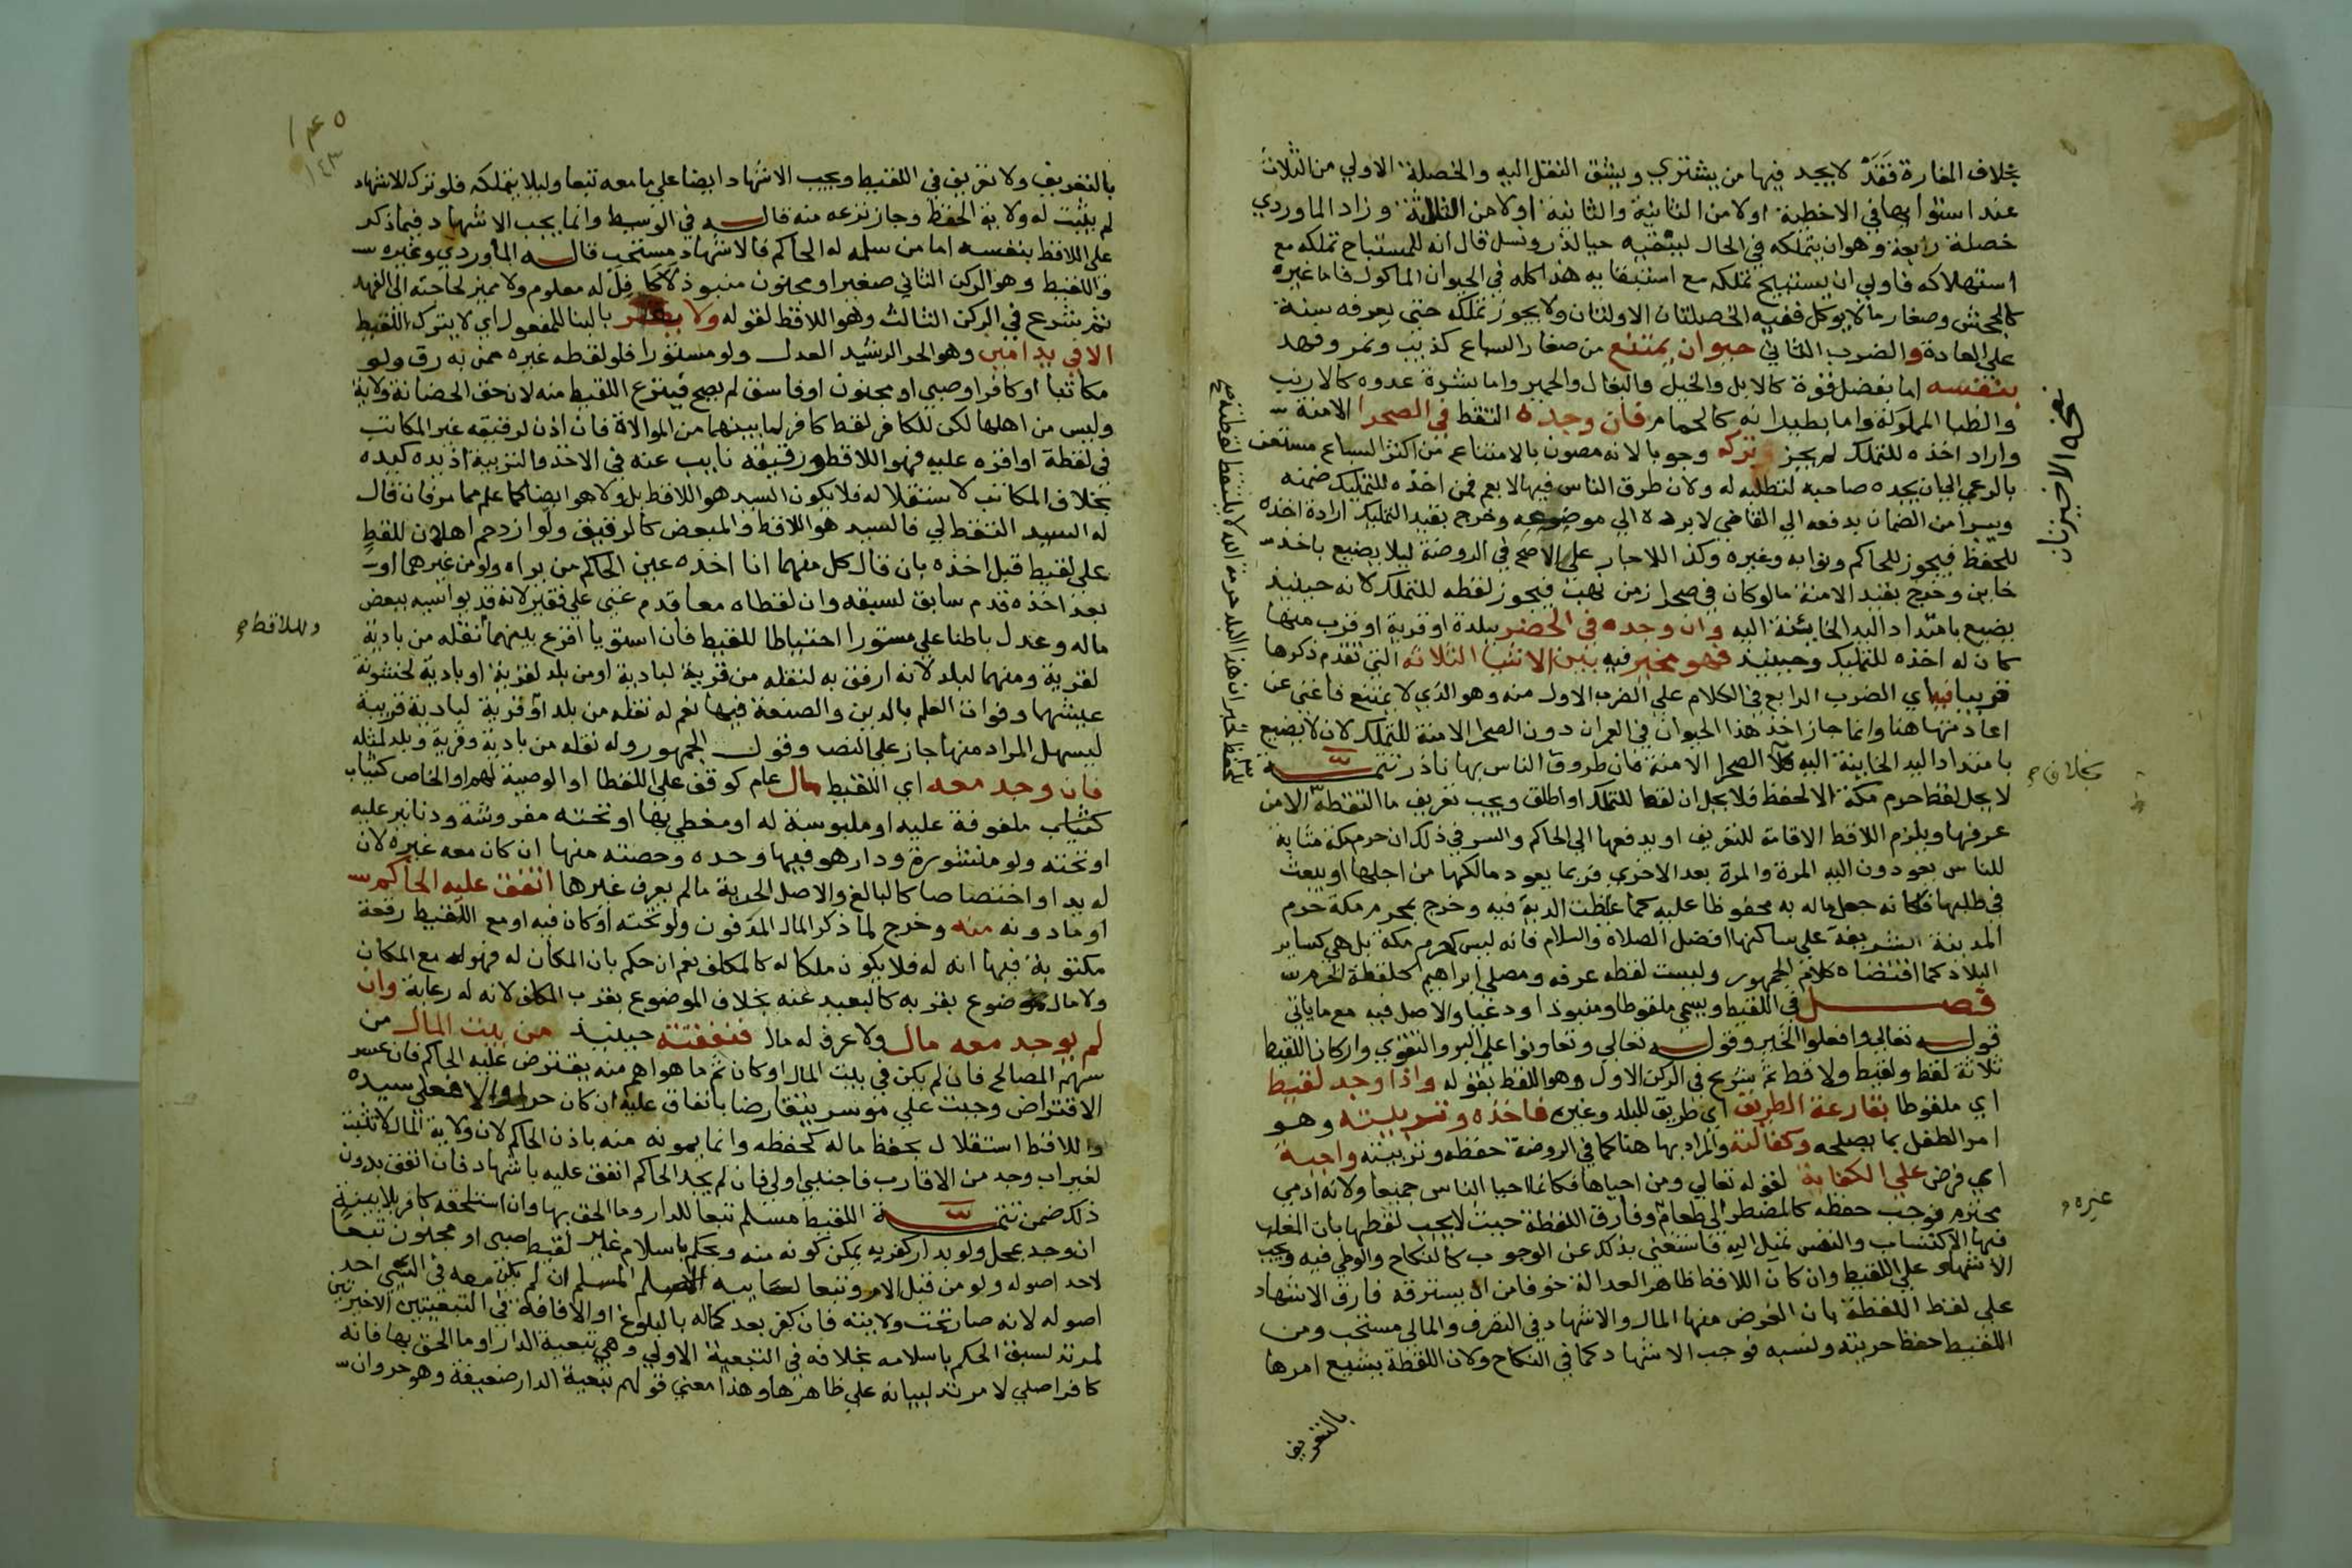 بخلاف المفازة فقد لا يجد فيها من يشتري ويشق النقل اليه والخصلة الاولي من الثلاث
عند استوايها في الاحظية اولا من الثانية والثانية اولا من الثالثة وزاد الماوردي
خصلة رابعة وهو ان يتملكه في الحال ليبقيه حيا لدر ونسل قال انه لما استباح تملكه مع
استهلاكه فاولي ان يستبيح تملكه مع استبقايه هذا كله في الحيوان الماكول فاما غيره
كالجحش وصغار ما لا يوكل ففيه الخصلتان الاولتان ولا يجوز تملكه حتى يعرفه سنة
علي العادة والضرب الثاني حيوان يمتنع من صغار السباع كذيب ونمر وفهد
بنفسه اما بفضل قوة كالابل والخيل والبغال والحمير واما بشدة عدوه كالارنب
والظبا المملوكة واما بطيرانه كالحمام فان وجده الملتقط في الصحرا الامنة
واراد اخذه للتملك لم يجز وتركه وجوبا لانه مصون بالامتناع من اكثر السباع مستغن
بالرعي الي ان يجده صاحبه لتطلبه له ولان طروق الناس فيها لا يعم فمن اخذه للتمليك ضمنه
ويبرا من الضمان بدفعه الي القاضي لا برده الي موضعه وخرج بقيد التمليك ارادة اخذه
للحفظ فيجوز للحاكم ونوابه وغيره وكذا للاحاد علي الاصح في الروضة ليلا يضيع باخذ
خاين وخرج بقيد الامنة ما لو كان في صحرا زمن نهب فيجوز لقطه للتملك لانه حينيذ
يضيع بامتداد اليد الخاينة اليه وان وجده في الحضر ببلدة او قرية او قرب منها
كان له اخذه للتمليك وحينيذ فهو مخير فيه بين الاشيا الثلاثة التي تقدم ذكرها
قريبا فيه اي الضرب الرابع في الكلام علي الضرب الاول منه وهو الذي لا يمتنع فاغني عن
اعادتها هنا وانما جاز اخذ هذا الحيوان في العمران دون الصحرا الامنة للتملك لان لا يضيع
بامتداد اليد الخاينة اليه الصحرا الامنة فان طروق الناس بها نادر تتمة
لا يحل لقط حرم مكة الا لحفظ فلا يحل ان لقط للتملك او اطلق ويجب تعريف ما التقطه الامن
عرفها ويلزم اللاقط الاقامة للتعريف او يدفعها الي الحاكم والسر في ذلك ان حرم مكة مثابة
للناس يعودون اليه المرة والمرة بعد الاخري فربما يعود مالكها من اجلها او يبعث
في طلبها فكانه جعل ماله به محفوظا عليه كما غلظت الدية فيه وخرج بحرم مكة حرم
المدينة الشريفة علي ساكنها افضل الصلاة والسلام فانه ليس كحرم مكة بل هي كساير
البلاد كما اقتضاه كلام الجمهور وليست لقطة عرفة ومصلي ابراهيم كلقطة الحرم
فصل في اللقيط ويسمي ملقوطا ومنبوذا ودعيا والاصل فيه مع ما ياتي
قوله تعالي وافعلوا الخير وقوله تعالي وتعاونوا علي البر والتقوي واركان اللقيط
ثلاثة لقط ولقيط ولاقط ثم شرع في الركن الاول وهو اللقط بقوله واذا وجد لقيط
اي ملقوطا بقارعة الطريق اي طريق للبلد وغيره فاخذه وتربيته وهو
امر الطفل بما يصلحه وكفالته والمراد بها هنا كما في الروضة حفظه وتربيته واجبة
اي فرض علي الكفاية لقوله تعالي ومن احياها فكانما احيا الناس جميعا ولانه ادمي
محترم فوجب حفظه كالمضطر الي طعام وفارق اللقطة حيث لا يجب لقطها بان المغلب
فيها الاكتساب والنفس تميل اليه فاستغني بذلك عن الوجوب كالنكاح والوطي فيه ويجب
الاشهاد علي اللقيط وان كان اللاقط ظاهر العدالة خوفا من ان يسترقه فارق الاشهاد
علي لقط اللقطة بان الغرض منها المال والاشهاد في التصرف والمالي مستحب ومن
اللقيط حفظ حريته ونسبه فوجب الاشهاد كما في النكاح ولان اللقطة يشيع امرها
بالتعريف
نسخه الاخيرتان
بخلاف
غيره
١٤٣
بالتعريف ولا تعريف في اللقيط ويجب الاشهاد ايضا علي ما معه تبعا وليلا يتملكه فلو ترك الاشهاد
لم يثبت له ولاية الحفظ وجاز نزعه منه قاله في الوسيط وانما يجب الاشهاد فيما ذكر
علي اللاقط بنفسه اما من سلمه له الحاكم فالاشهاد مستحب قاله الماوردي وغيره
واللقيط وهو الركن الثاني صغير او مجنون منبوذ لا كافل له معلوم ولا مميز لحاجته الي التعهد
ثم شرع في الركن الثالث وهو اللاقط لقوله ولا يقر بالبنا للمفعول اي لا يترك اللقيط
الا في يد امين وهو الحر الرشيد العدل ولو مستورا فلو لقطه غيره ممن به رق ولو
مكاتبا او كافرا وصبي او مجنون او فاسق لم يصح فينزع اللقيط منه لان حق الحضانة ولاية
وليس من اهلها لكن للكافر لقط كافر لما بينهما من الموالاة فان اذن لرقيقه غير المكاتب
في لقطه او اقره عليه فهو اللاقط ورقيقه نايب عنه في الاخذ والتربية اذ يده كيده
بخلاف المكاتب لاستقلاله فلا يكون السيد هو اللاقط بل ولا هو ايضا كما علم مما مر فان قال
له السيد التقط لي فالسيد هو اللاقط والمبعض كالرقيق ولو ازدحم اهلان للقط
علي لقيط قبل اخذه بان قال كل منهما انا اخذه عين الحاكم من يراه ولو من غيرهما او
بعد اخذه قدم سابق لسبقه وان لقطاه معا قدم غني علي فقير لانه قد يواسيه ببعض
ماله وعدل باطنا علي مستورا احتياطا للقيط فان استويا اقرع بينهما نقله من بادية
لقرية ومنهما لبلد لانه ارفق به لنقله من قرية لبادية او من بلد لقرية او بادية لخشونة
عيشهما وفوات العلم بالدين والصنعة فيهما نعم له نقله من بلد او قرية لبادية قريبة
ليسهل المراد منها جاز علي النص وقول الجمهور وله نقله من بادية وقرية وبلد لمثله
فان وجد معه اي اللقيط مال عام كوقف علي اللقطا او الوصية لهم او الخاص كثياب
كثياب ملفوفة عليه او ملبوسة له او مغطي بها او تحته مفروشة ودنانير عليه
او تحته ولو منثورة ودار هو فيها وحده وحصته منها ان كان معه غيره لان
له يدا واختصاصا كالبالغ والاصل الحرية ما لم يعرف غيرها انفق عليه الحاكم
او ماذونه منه وخرج لما ذكر المال المدفون ولو تحته او كان فيه او مع اللقيط رقعة
مكتوبة فيها انه له فلا يكون ملكا له كالمكلف نعم ان حكم بان المكان له فهو له مع المكان
ولا مال موضوع بقربه كالبعيد عنه بخلاف الموضوع بقرب المكلف لانه له رعاية وان
لم يوجد معه مال ولا عرف له مال فنفقته حينيذ من بيت المال من
سهم المصالح فان لم يكن في بيت المال او كان ثم ما هو اهم منه يقترض عليه الحاكم فان عسر
الاقتراض وجبت علي موسر يتقارضا بانفاق عليه ان كان حرا والا فعلي سيده
وللاقط استقلال بحفظ ماله كحفظه وانما يمونه منه باذن الحاكم لان ولاية المال لا تثبت
لغير اب وجد من الاقارب فاجنبي اولي فان لم يجد الحاكم انفق عليه باشهاد فان انفق بدون
ذلك ضمن تتمة اللقيط مسلم تبعا للدار وما الحق بها وان استلحقه كافر بلا بينة
ان وجد بمحل ولو بدار كفر به يمكن كونه منه ويحكم باسلام غير لقيط صبي او مجنون تبعا
لاحد اصوله ولو من قبل الام وتبعا المسلم ان لم يكن معه في السبي احد
اصوله لانه صار تحت ولايته فان كفر بعد كماله بالبلوغ او الافاقة في التبعيتين الاخيرتين
لمرتد لسبق الحكم باسلامه بخلافه في التبعية الاولي وهي تبعية الدار او ما الحق بها فانه
كافر اصلي لا مرتد لبيانه علي ظاهرها وهذا معني قولهم تبعية الدار ضعيفة وهو حر وان
وللاقط